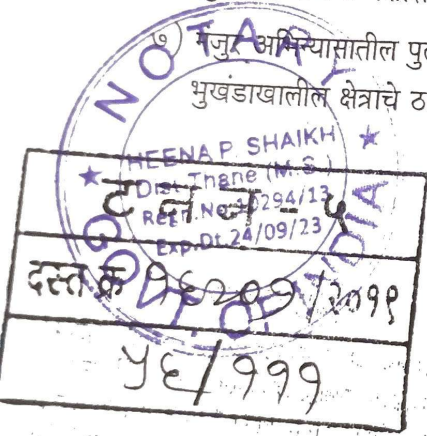 ७) मंजुर अभिन्यासातील पु
भुखंडाखालील क्षेत्राचे ठ
NOTARY
HEENA P. SHAIKH
Dist. Thane (M.S.)
Exp.Dt.24/09/23
GOVT. OF INDIA
ट न न - ५
दस्त क्र /२०१९
५६/१११